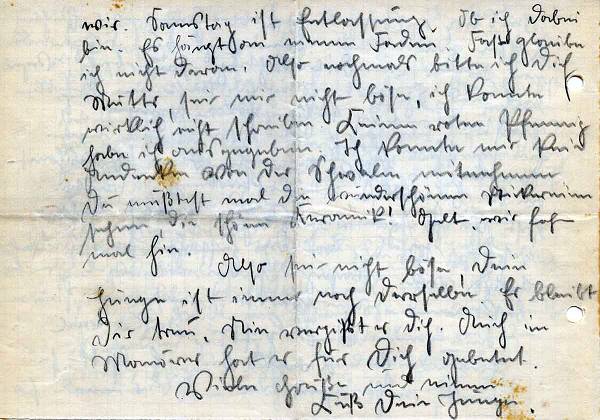 wir. Sonnstag ist Entlassung. Ob ich dabei
bin. Es hängt an einem Faden. Fast glaube
ich nicht daran. Also nochmals bitte ich Dich
Mutti, sei mir nicht böse, ich konnte
wirklich nicht schreiben. Keinen roten Pfennig
habe ich ausgegeben. Ich konnte mir kein
Andenken von der mitnehmen
Du müßtest mal die wunderschönen Stickereien
sehen, die schöne Keramik! Gelt, wir fahren
mal hin.
Also sei nicht böse, Dein
Junge ist immer noch derselbe. Er bleibt
Dir treu, Nie vergißt er Dich. Auch im
Manöver hat er für Dich gebetet.
Viele Grüße und einen
Kuß Dein Junge